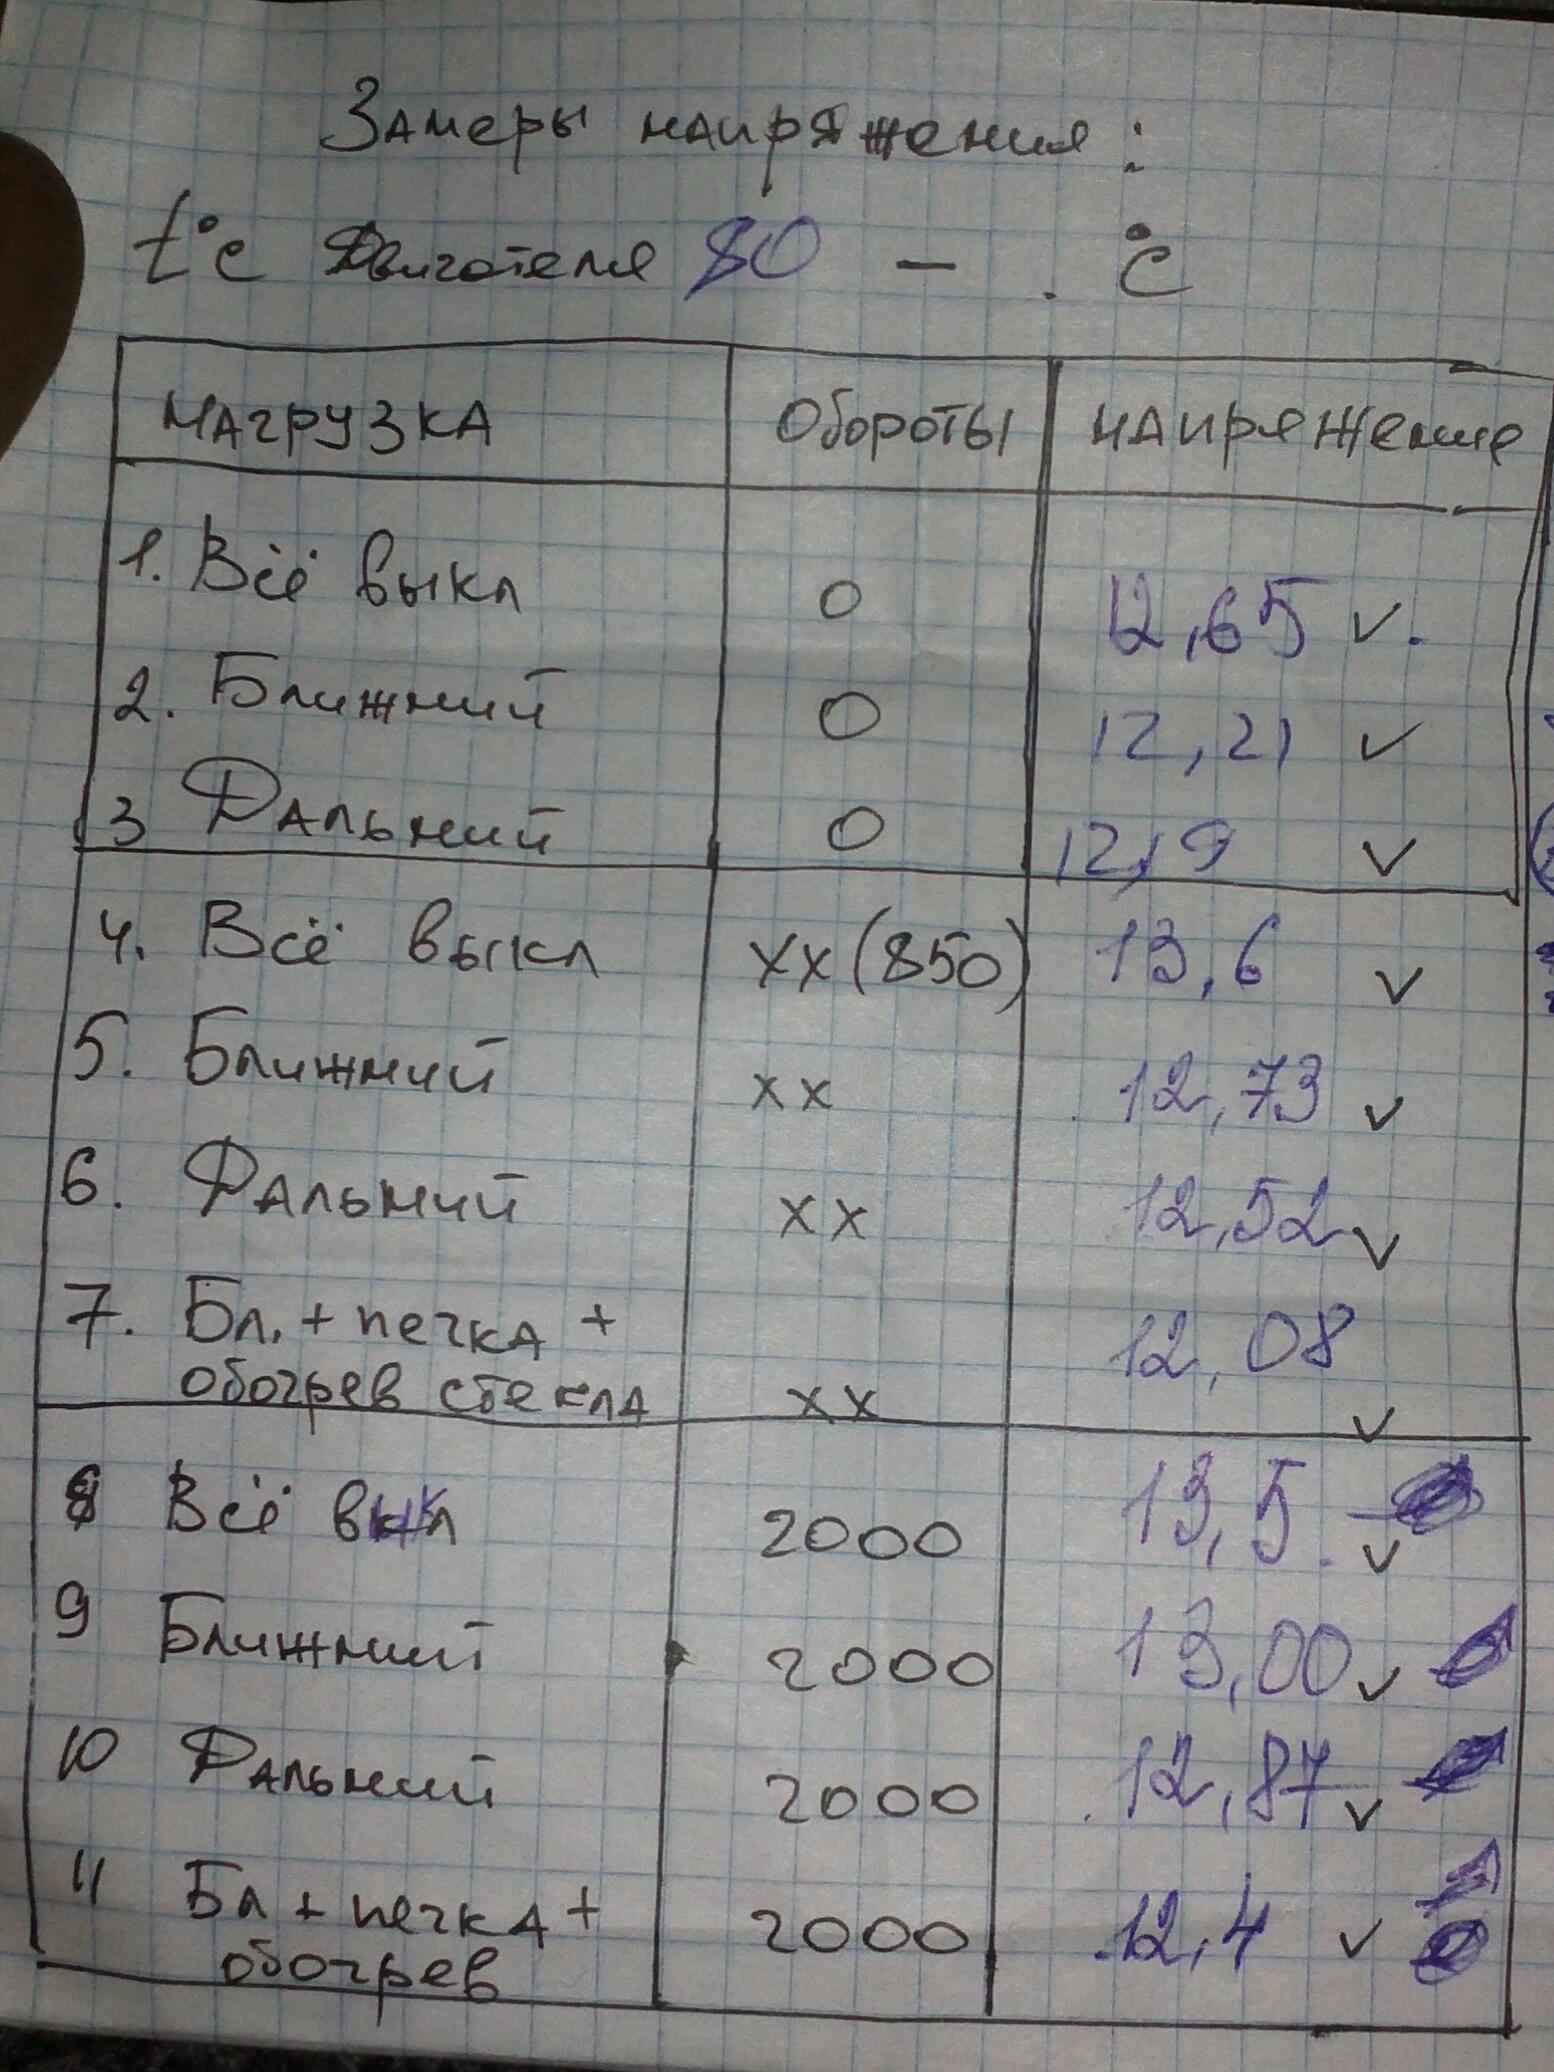 Замеры напряжения:
t°c Двигателя 80 - . °C
нагрузка Обороты напряжение
1. Всё выкл 0 12,65 ✓.
2. Ближний 0 12,21 ✓
3 Дальний 0 12,19 ✓
4. Всё выкл хх (850) 13,6 ✓
5. Ближний хх 12,73 ✓
6. Дальний хх 12,52 ✓
7. Бл. + печка + 12,08
обогрев стекла хх ✓
8 Всё выкл 2000 13,5 ✓
9 Ближний 2000 13,00 ✓
10 Дальний 2000 12,87 ✓
11 Бл + печка + 2000 12,4 ✓
обогрев